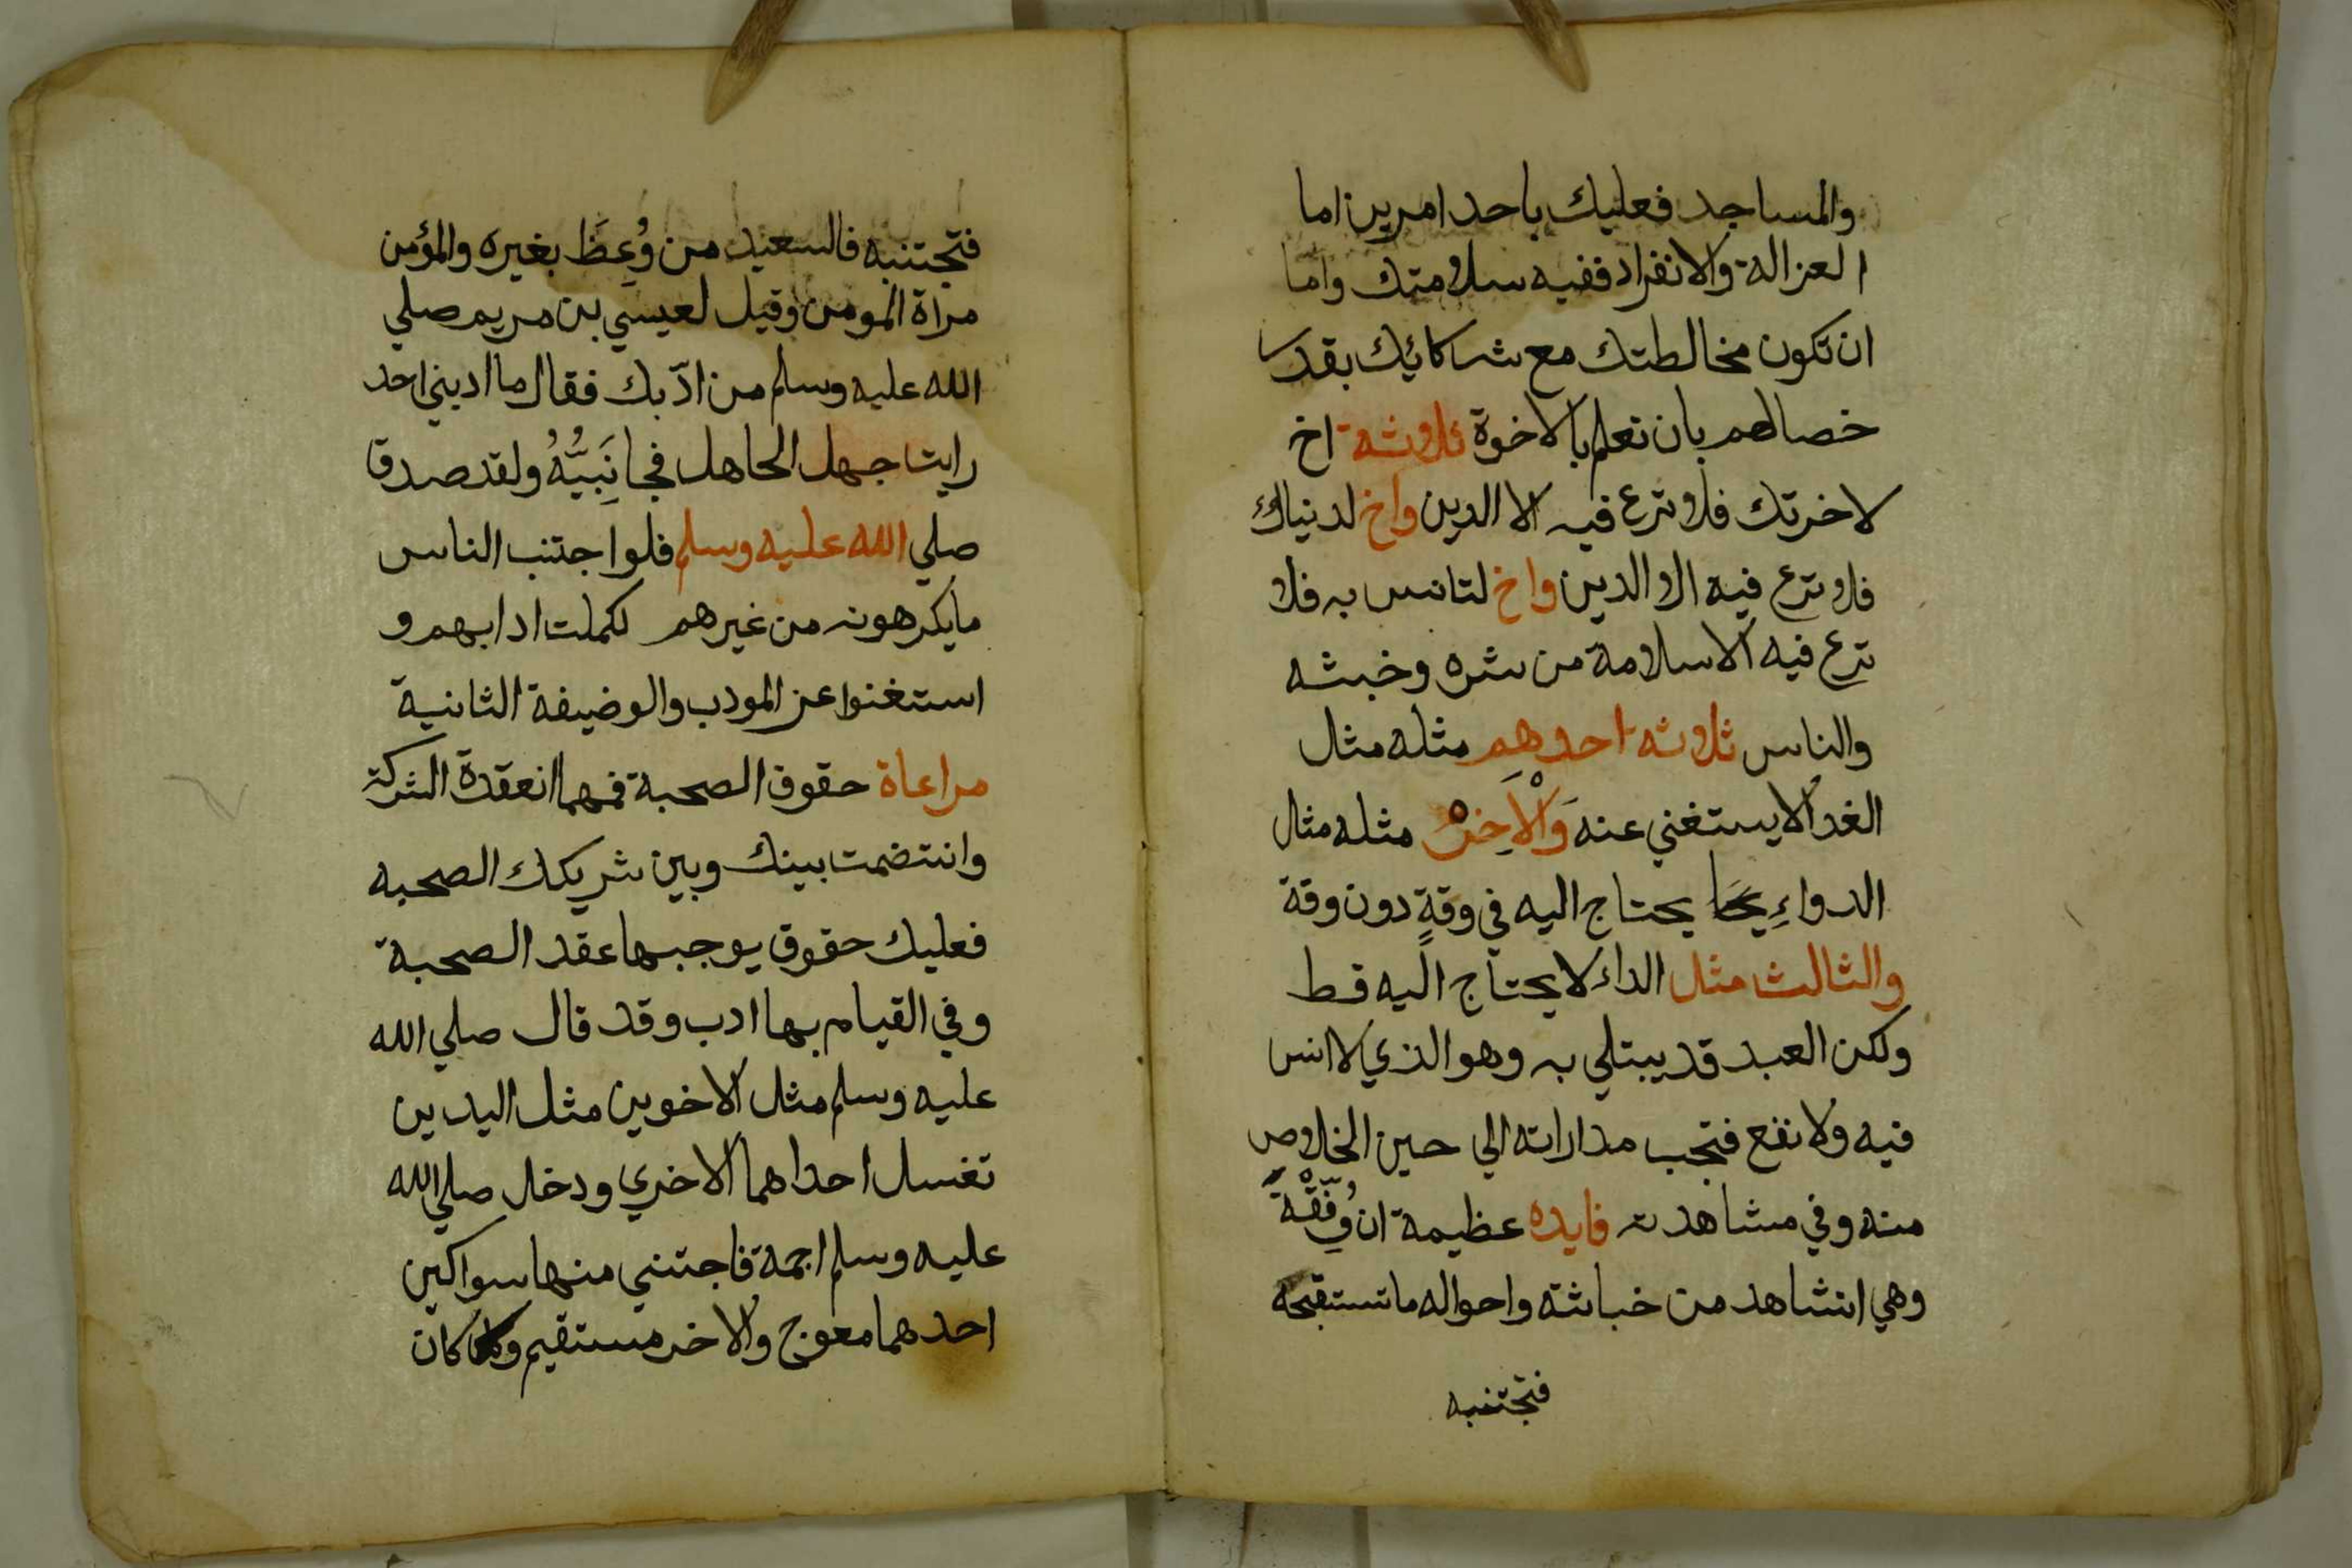 والمساجد فعليك باحد امرين اما
العزالة والانفراد ففيه سلامتك واما
ان تكون مخالطتك مع شركائك بقدر
خصالهم بان تعلم بالاخوة ثلاثة اخ
لاخرتك فلا ترع فيه الا الدين واخ لدنياك
فلا ترع فيه الا الدين واخ لتانس به فلا
ترع فيه الا سلامة من شره وخبثه
والناس ثلاثة احدهم مثله مثال
الغدا لا يستغني عنه وَالْاخِرْ مثله مثال
الدواءِ يحتاج اليه في وقةٍ دون وقة
والثالث مثل الداء لا يحتاج اليه قط
ولكن العبد قد يبتلي به وهو الذي لا انس
فيه ولا نفع فتجب مداراته الي حين الخلاص
منه وفي مشاهدته فايده عظيمة ان وُفِّقْةَ
وهي انتشاهد من خباثثة واحواله ماتستقبحه
فتجتنبه
فتجتنبه فالسعيد من وُعِظَ بغيره والمؤمن
مراة المومن وقيل لعيسي بن مريم صلي
الله عليه وسلم من ادّبك فقال ما ادبني احد
رايت جهل الجاهل فجانَبيُّهُ ولقد صدق
صلي الله عليه وسلم فلو اجتنب الناس
ما يكرهونه من غيرهم لكملت ادابهم و
استغنوا عن المودب والوضيفة الثانية
مراعاة حقوق الصحبة فمهما انعقدة الشركة
وانتضمت بينك وبين شريكك الصحبه
فعليك حقوق يوجبها عقد الصحبة
وفي القيام بها ادب وقد قال صلي الله
عليه وسلم مثل الاخوين مثل اليدين
تغسل احداهما الاخري ودخل صلي الله
عليه وسلم اجمة فاجتني منها سواكين
احدهما معوج والاخر مستقيم وكان